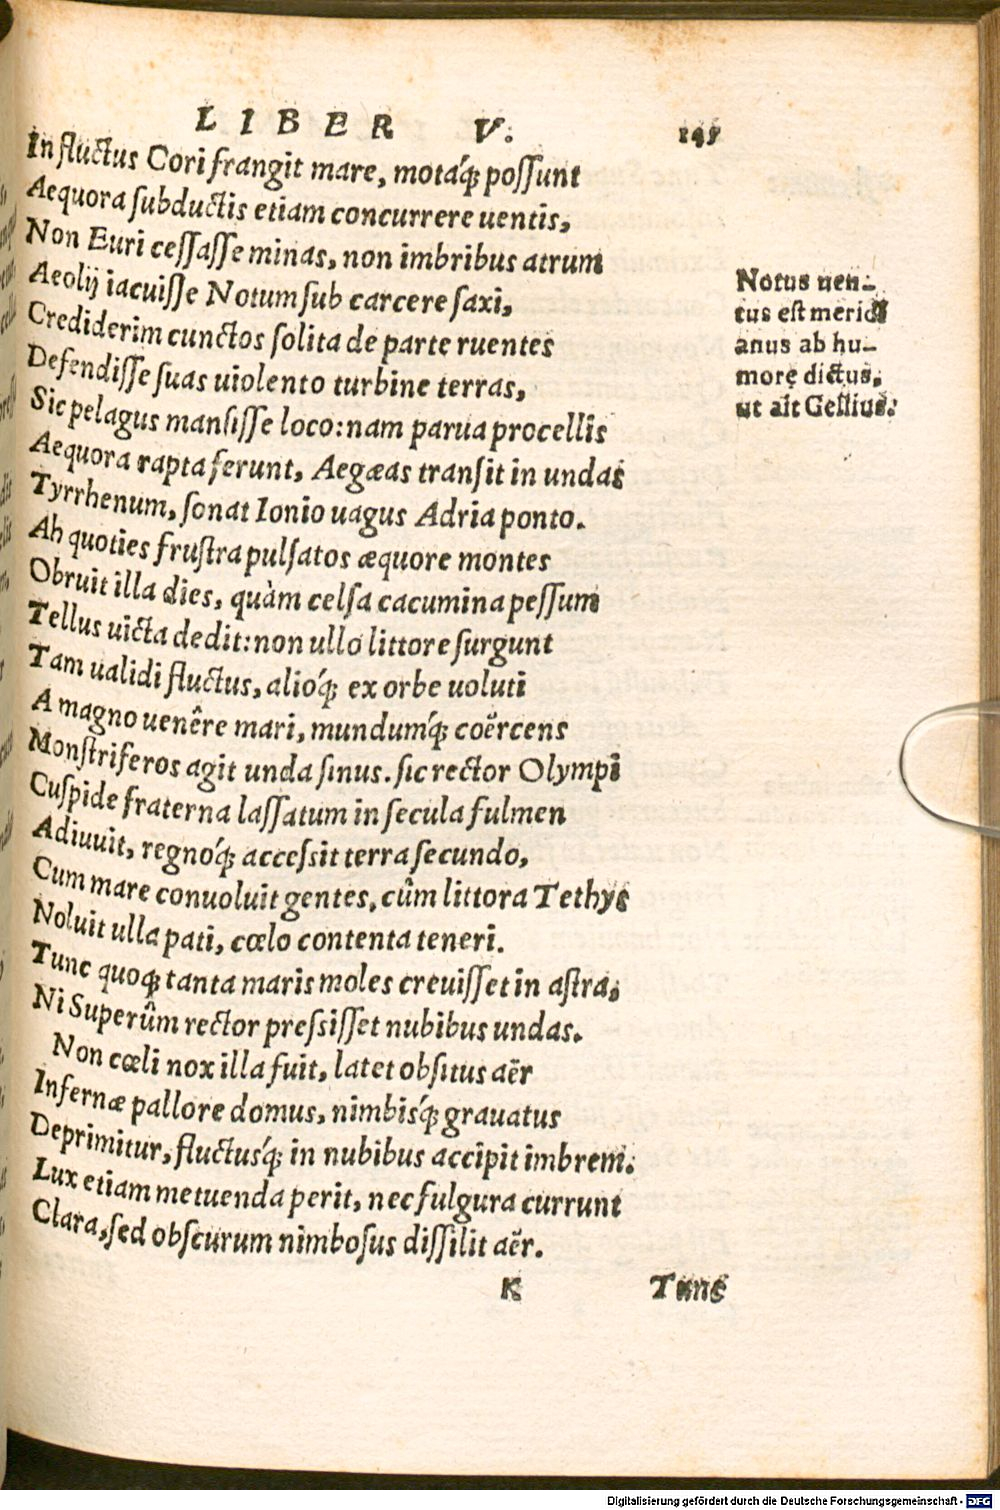 LIBER V. 145
In fluctus Cori frangit mare, motáq́; poſſunt
Aequora ſubductis etiam concurrere uentis,
Non Euri ceſſaſſe minas, non imbribus atrum
Aeolij iacuiſſe Notum ſub carcere ſaxi,
Crediderim cunctos ſolita de parte ruentes
Defendiſſe ſuas uiolento turbine terras,
Sic pelagus manſiſſe loco: nam parua procellis
Aequora rapta ferunt, Aegæas tranſit in undas
Tyrrhenum, ſonat Ionio uagus Adria ponto.
Ah quoties fruſtra pulſatos æquore montes
Obruit illa dies, quàm celſa cacumina peſſum
Tellus uicta dedit: non ullo littore ſurgunt
Tam ualidi fluctus, alióq́; ex orbe uoluti
A magno uenêre mari, mundumq́; coërcens
Monſtriferos agit unda ſinus. ſic rector Olympi
Cuſpide fraterna laſſatum in ſecula fulmen
Adiuuit, regnóq́; acceſsit terra ſecundo,
Cum mare conuoluit gentes, cûm littora Tethys
Noluit ulla pati, cœlo contenta teneri.
Tunc quoq; tanta maris moles creuiſſet in aſtra,
Ni Superûm rector preſsiſſet nubibus undas.
Non cœli nox illa fuit, latet obſitus aër
Infernæ pallore domus, nimbisq́; grauatus
Deprimitur, fluctusq́; in nubibus accipit imbrem.
Lux etiam metuenda perit, nec fulgura currunt
Clara, ſed obſcurum nimboſus diſsilit aër.
K Tunc
Notus uen-
tus eſt meridi
anus ab hu-
more dictus,
ut ait Gellius.
Digitalisierung gefördert durch die Deutsche Forschungsgemeinschaft - DFG